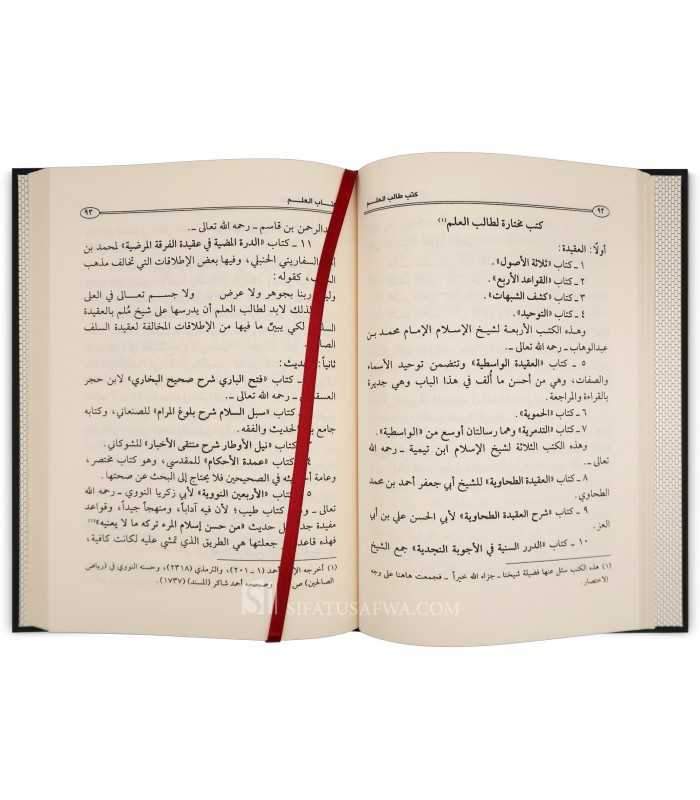 ٩٢
كتب طالب العلـــم
كتب مختارة لطالب العلم(١)
أولًا: العقيدة:
١ ـ كتاب «ثلاثة الأصول».
٢ ـ كتاب «القواعد الأربع».
٣ ـ كتاب «كشف الشبهات».
٤ ـ كتاب «التوحيد».
وهذه الكتب الأربعة لشيخ الإسلام الإمام محمد بن
عبدالوهاب ـ رحمه الله تعالى ـ.
٥ ـ كتاب «العقيدة الواسطية» وتتضمن توحيد الأسماء
والصفات، وهي من أحسن ما ألف في هذا الباب وهي جديرة
بالقراءة والمراجعة.
٦ ـ كتاب «الحموية».
٧ ـ كتاب «التدمرية» وهما رسالتان أوسع من «الواسطية».
وهذه الكتب الثلاثة لشيخ الإسلام ابن تيمية ـ رحمه الله
تعالى ـ.
٨ ـ كتاب «العقيدة الطحاوية» للشيخ أبي جعفر أحمد بن محمد
الطحاوي.
٩ ـ كتاب «شرح العقيدة الطحاوية» لأبي الحسن علي بن أبي
العز.
١٠ ـ كتاب «الدرر السنية في الأجوبة النجدية» جمع الشيخ
(١) هذه الكتب مثل عنها فضيلة شيخنا ـ جزاه الله خيراً ـ فجمعت هاهنا على وجه
الاختصار
العلـــم
٩٣
عبدالرحمن بن قاسم ـ رحمه الله تعالى ـ.
١١ ـ كتاب «الدرة المضية في عقيدة الفرقة المرضية» لمحمد بن
السفاريني الحنبلي، وفيها بعض الإطلاقات التي تخالف مذهب
كقوله:
ربنا بجوهر ولا عرض ولا جســـم تعـــالى في العلى
لذلك لابد لطالب العلم أن يدرسها على شيخ مُلم بالعقيدة
لكي يبيّن ما فيها من الإطلاقات المخالفة لعقيدة السلف
ثانياً:
كتاب «فتح الباري شرح صحيح البخاري» لابن حجر
ـ رحمه الله تعالى ـ.
كتاب «سبل السلام شرح بلوغ المرام» للصنعاني، وكتابه
جامع الحديث والفقه.
كتاب «نيل الأوطار شرح منتقى الأخبار» للشوكاني.
كتاب «عمدة الأحكام» للمقدسي، وهو كتاب مختصر،
وعامة في الصحيحين فلا يحتاج إلى البحث عن صحتها.
٥ كتاب «الأربعين النووية» لأبي زكريا النووي ـ رحمه الله
تعالى ـ كتاب طيب؛ لأن فيه آداباً، ومنهجاً جيداً، وقواعد
مفيدة حديث «من حسن إسلام المرء تركه ما لا يعنيه»(١)
فهذه جعلتها هي الطريق الذي تمشي عليه لكانت كافية،
(١) أخرجه أحمد (١ ـ ٢٠١)، والترمذي (٢٣١٨)، وحسنه النووي في (رياض
الصالحين) ص أحمد شاكر (المسند) (١٧٣٧).
SIFATUSAFWA.COM